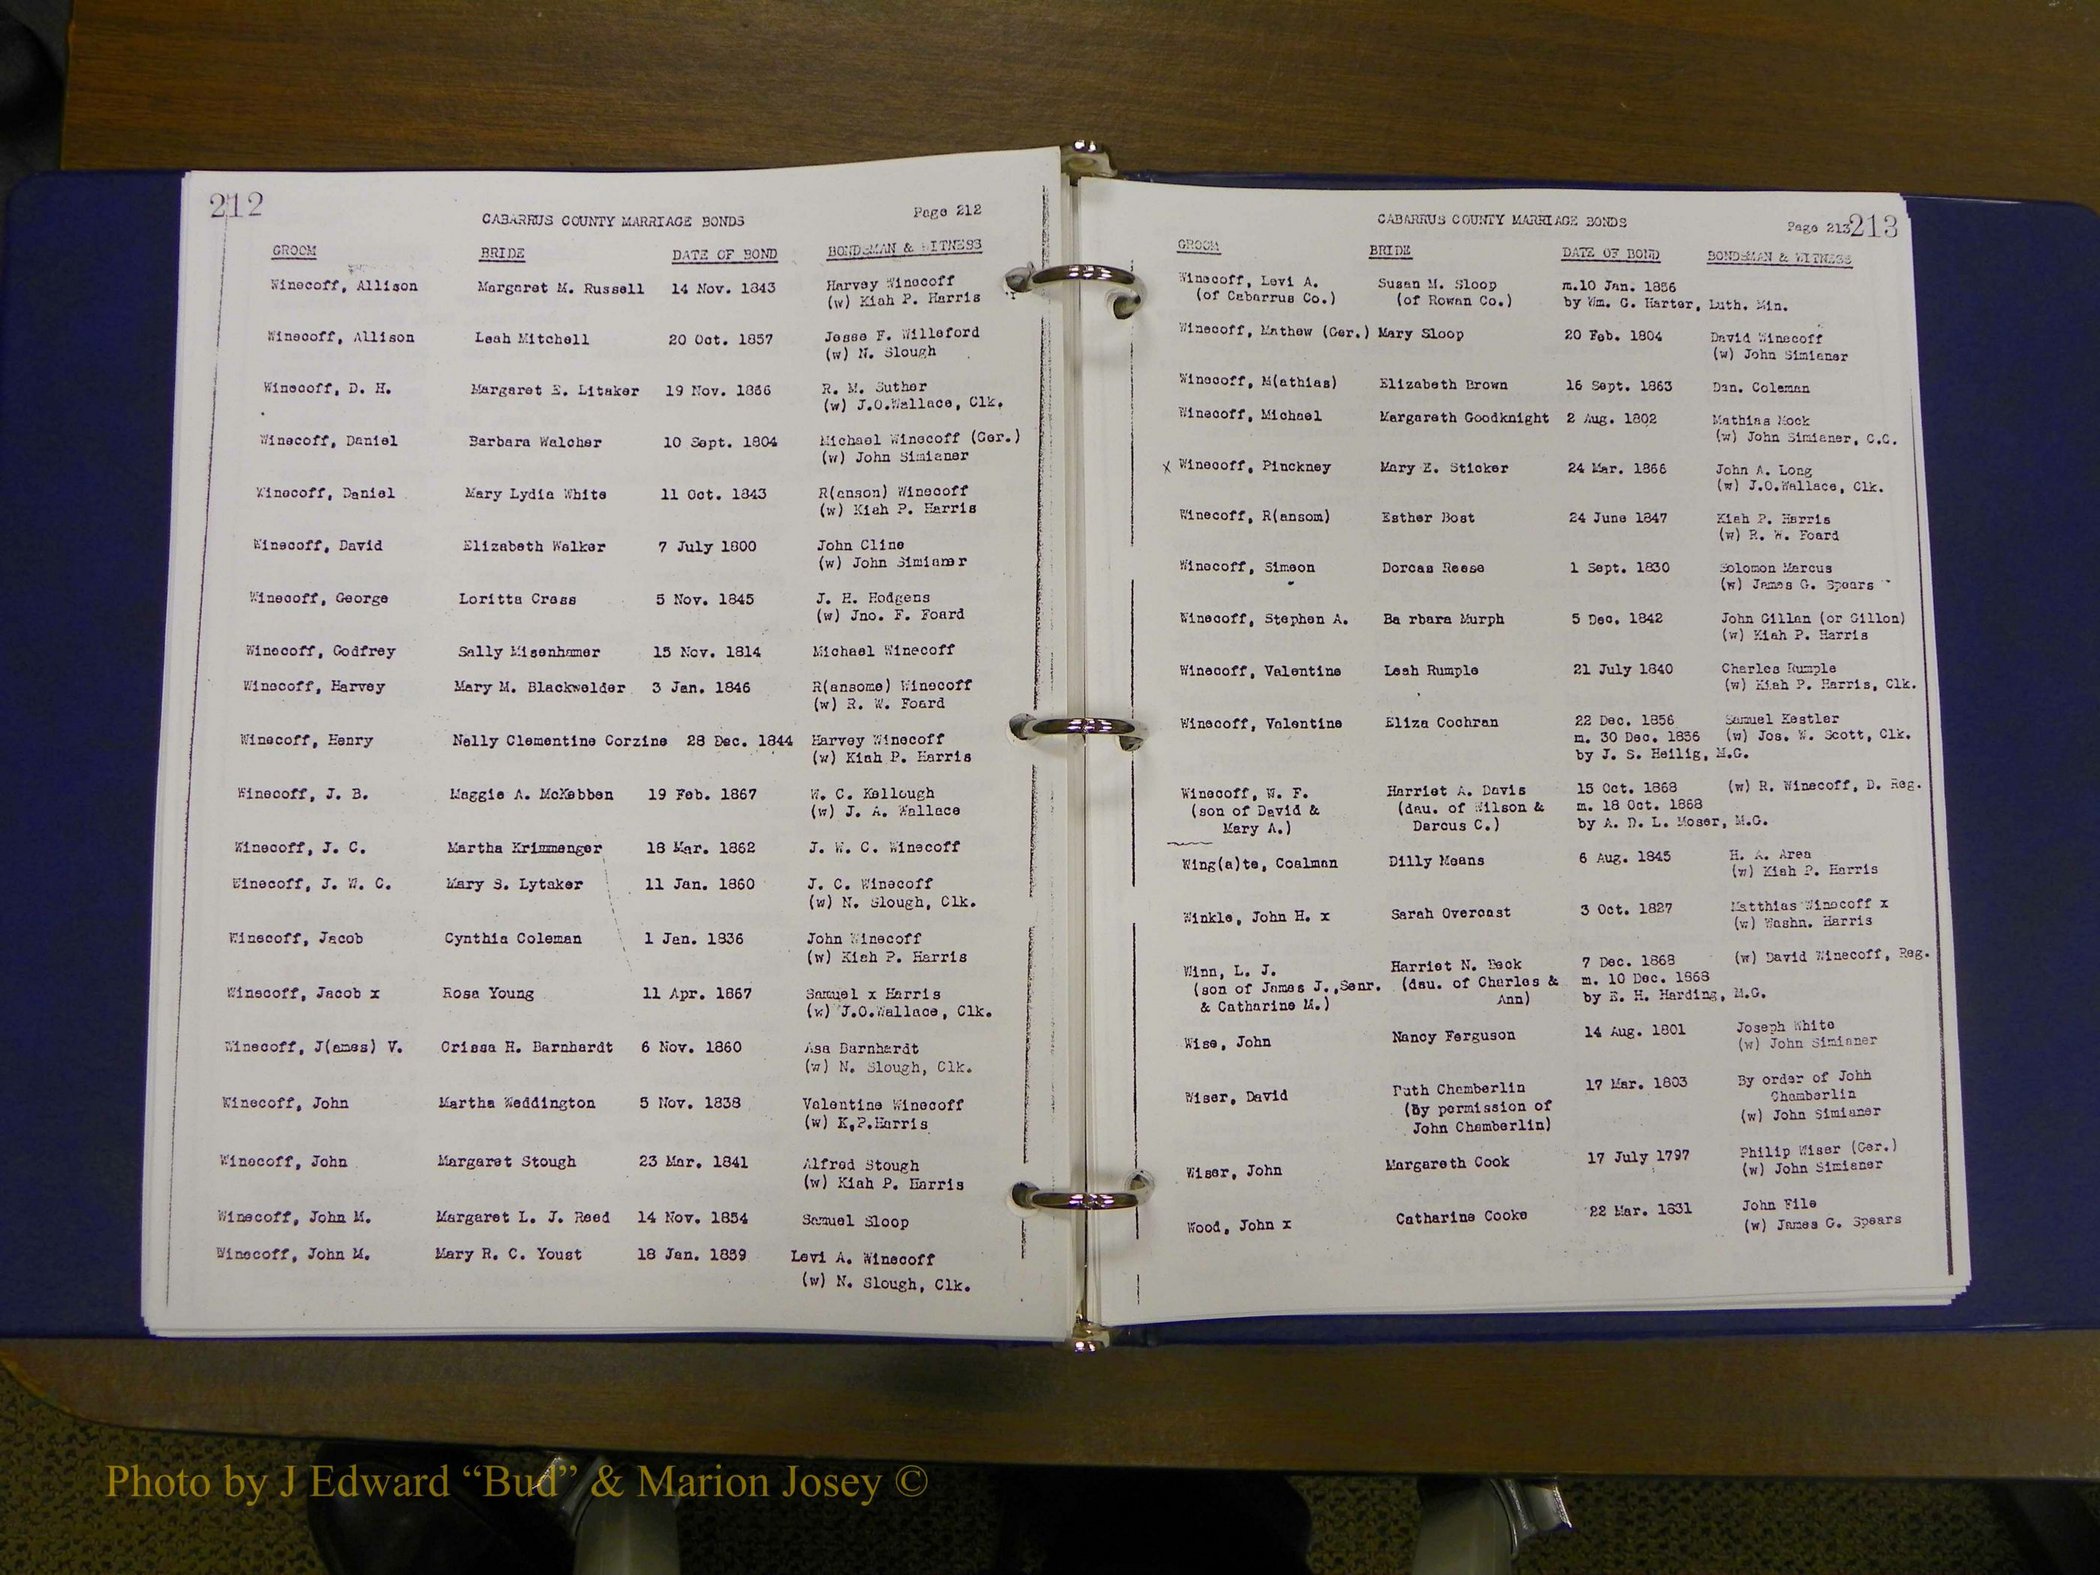 212
CABARRUS COUNTY MARRIAGE BONDS Page 212
GROOM BRIDE DATE OF BOND BONDSMAN & WITNESS
Winecoff, Allison Margaret M. Russell 14 Nov. 1843 Harvey Winecoff
(w) Kiah P. Harris
Winecoff, Allison Leah Mitchell 20 Oct. 1857 Jesse F. Willeford
(w) N. Slough
Winecoff, D. H. Margaret E. Litaker 19 Nov. 1866 R. M. Suther
(w) J.O.Wallace, Clk.
Winecoff, Daniel Barbara Walcher 10 Sept. 1804 Michael Winecoff (Ger.)
(w) John Simianer
Winecoff, Daniel Mary Lydia White 11 Oct. 1843 R(anson) Winecoff
(w) Kiah P. Harris
Winecoff, David Elizabeth Walker 7 July 1800 John Cline
(w) John Simianer
Winecoff, George Loritta Cress 5 Nov. 1845 J. H. Hodgens
(w) Jno. F. Foard
Winecoff, Godfrey Sally Misenhamer 15 Nov. 1814 Michael Winecoff
Winecoff, Harvey Mary M. Blackwelder 3 Jan. 1846 R(ansome) Winecoff
(w) R. W. Foard
Winecoff, Henry Nelly Clementine Corzine 28 Dec. 1844 Harvey Winecoff
(w) Kiah P. Harris
Winecoff, J. B. Maggie A. McKebben 19 Feb. 1867 W. C. Kellough
(w) J. A. Wallace
Winecoff, J. C. Martha Krimmenger 18 Mar. 1862 J. W. C. Winecoff
Winecoff, J. W. C. Mary S. Lytaker 11 Jan. 1860 J. C. Winecoff
(w) N. Slough, Clk.
Winecoff, Jacob Cynthia Coleman 1 Jan. 1836 John Winecoff
(w) Kiah P. Harris
Winecoff, Jacob x Rosa Young 11 Apr. 1867 Samuel x Harris
(w) J.O.Wallace, Clk.
Winecoff, J(ames) V. Crissa H. Barnhardt 6 Nov. 1860 Asa Barnhardt
(w) N. Slough, Clk.
Winecoff, John Martha Weddington 5 Nov. 1838 Valentine Winecoff
(w) K.P.Harris
Winecoff, John Margaret Stough 23 Mar. 1841 Alfred Stough
(w) Kiah P. Harris
Winecoff, John M. Margaret L. J. Reed 14 Nov. 1854 Samuel Sloop
Winecoff, John M. Mary R. C. Youst 18 Jan. 1859 Levi A. Winecoff
(w) N. Slough, Clk.
CABARRUS COUNTY MARRIAGE BONDS Page 213 213
GROOM BRIDE DATE OF BOND BONDSMAN & WITNESS
Winecoff, Levi A. Susan M. Sloop m.10 Jan. 1856
(of Cabarrus Co.) (of Rowan Co.) by Wm. G. Harter, Luth. Min.
Winecoff, Mathew (Ger.) Mary Sloop 20 Feb. 1804 David Winecoff
(w) John Simianer
Winecoff, M(athias) Elizabeth Brown 16 Sept. 1863 Dan. Coleman
Winecoff, Michael Margareth Goodknight 2 Aug. 1802 Mathias Mock
(w) John Simianer, C.C.
x Winecoff, Pinckney Mary E. Sticker 24 Mar. 1866 John A. Long
(w) J.O.Wallace, Clk.
Winecoff, R(ansom) Esther Bost 24 June 1847 Kiah P. Harris
(w) R. W. Foard
Winecoff, Simeon Dorcas Reese 1 Sept. 1830 Solomon Marcus
(w) James G. Spears
Winecoff, Stephen A. Ba rbara Murph 5 Dec. 1842 John Gillan (or Gillon)
(w) Kiah P. Harris
Winecoff, Valentine Leah Rumple 21 July 1840 Charles Rumple
(w) Kiah P. Harris, Clk.
Winecoff, Valentine Eliza Cochran 22 Dec. 1856 Samuel Kestler
m. 30 Dec. 1856 (w) Jos. W. Scott, Clk.
by J. S. Heilig, M.G.
Winecoff, W. F. Harriet A. Davis 15 Oct. 1868 (w) R. Winecoff, D. Reg.
(son of David & (dau. of Wilson & m. 18 Oct. 1868
Mary A.) Darcus C.) by A. D. L. Moser, M.G.
Wing(a)te, Coalman Dilly Means 6 Aug. 1845 H. A. Area
(w) Kiah P. Harris
Winkle, John H. x Sarah Overcast 3 Oct. 1827 Matthias Winecoff x
(w) Washn. Harris
Winn, L. J. Harriet N. Beck 7 Dec. 1868 (w) David Winecoff, Reg.
(son of James J.,Senr. (dau. of Charles & m. 10 Dec. 1868
& Catharine M.) Ann) by E. H. Harding, M.G.
Wise, John Nancy Ferguson 14 Aug. 1801 Joseph White
(w) John Simianer
Wiser, David Ruth Chamberlin 17 Mar. 1803 By order of John
(By permission of Chamberlin
John Chamberlin) (w) John Simianer
Wiser, John Margareth Cook 17 July 1797 Philip Wiser (Ger.)
(w) John Simianer
Wood, John x Catharine Cooke 22 Mar. 1831 John File
(w) James G. Spears
Photo by J Edward “Bud” & Marion Josey ©